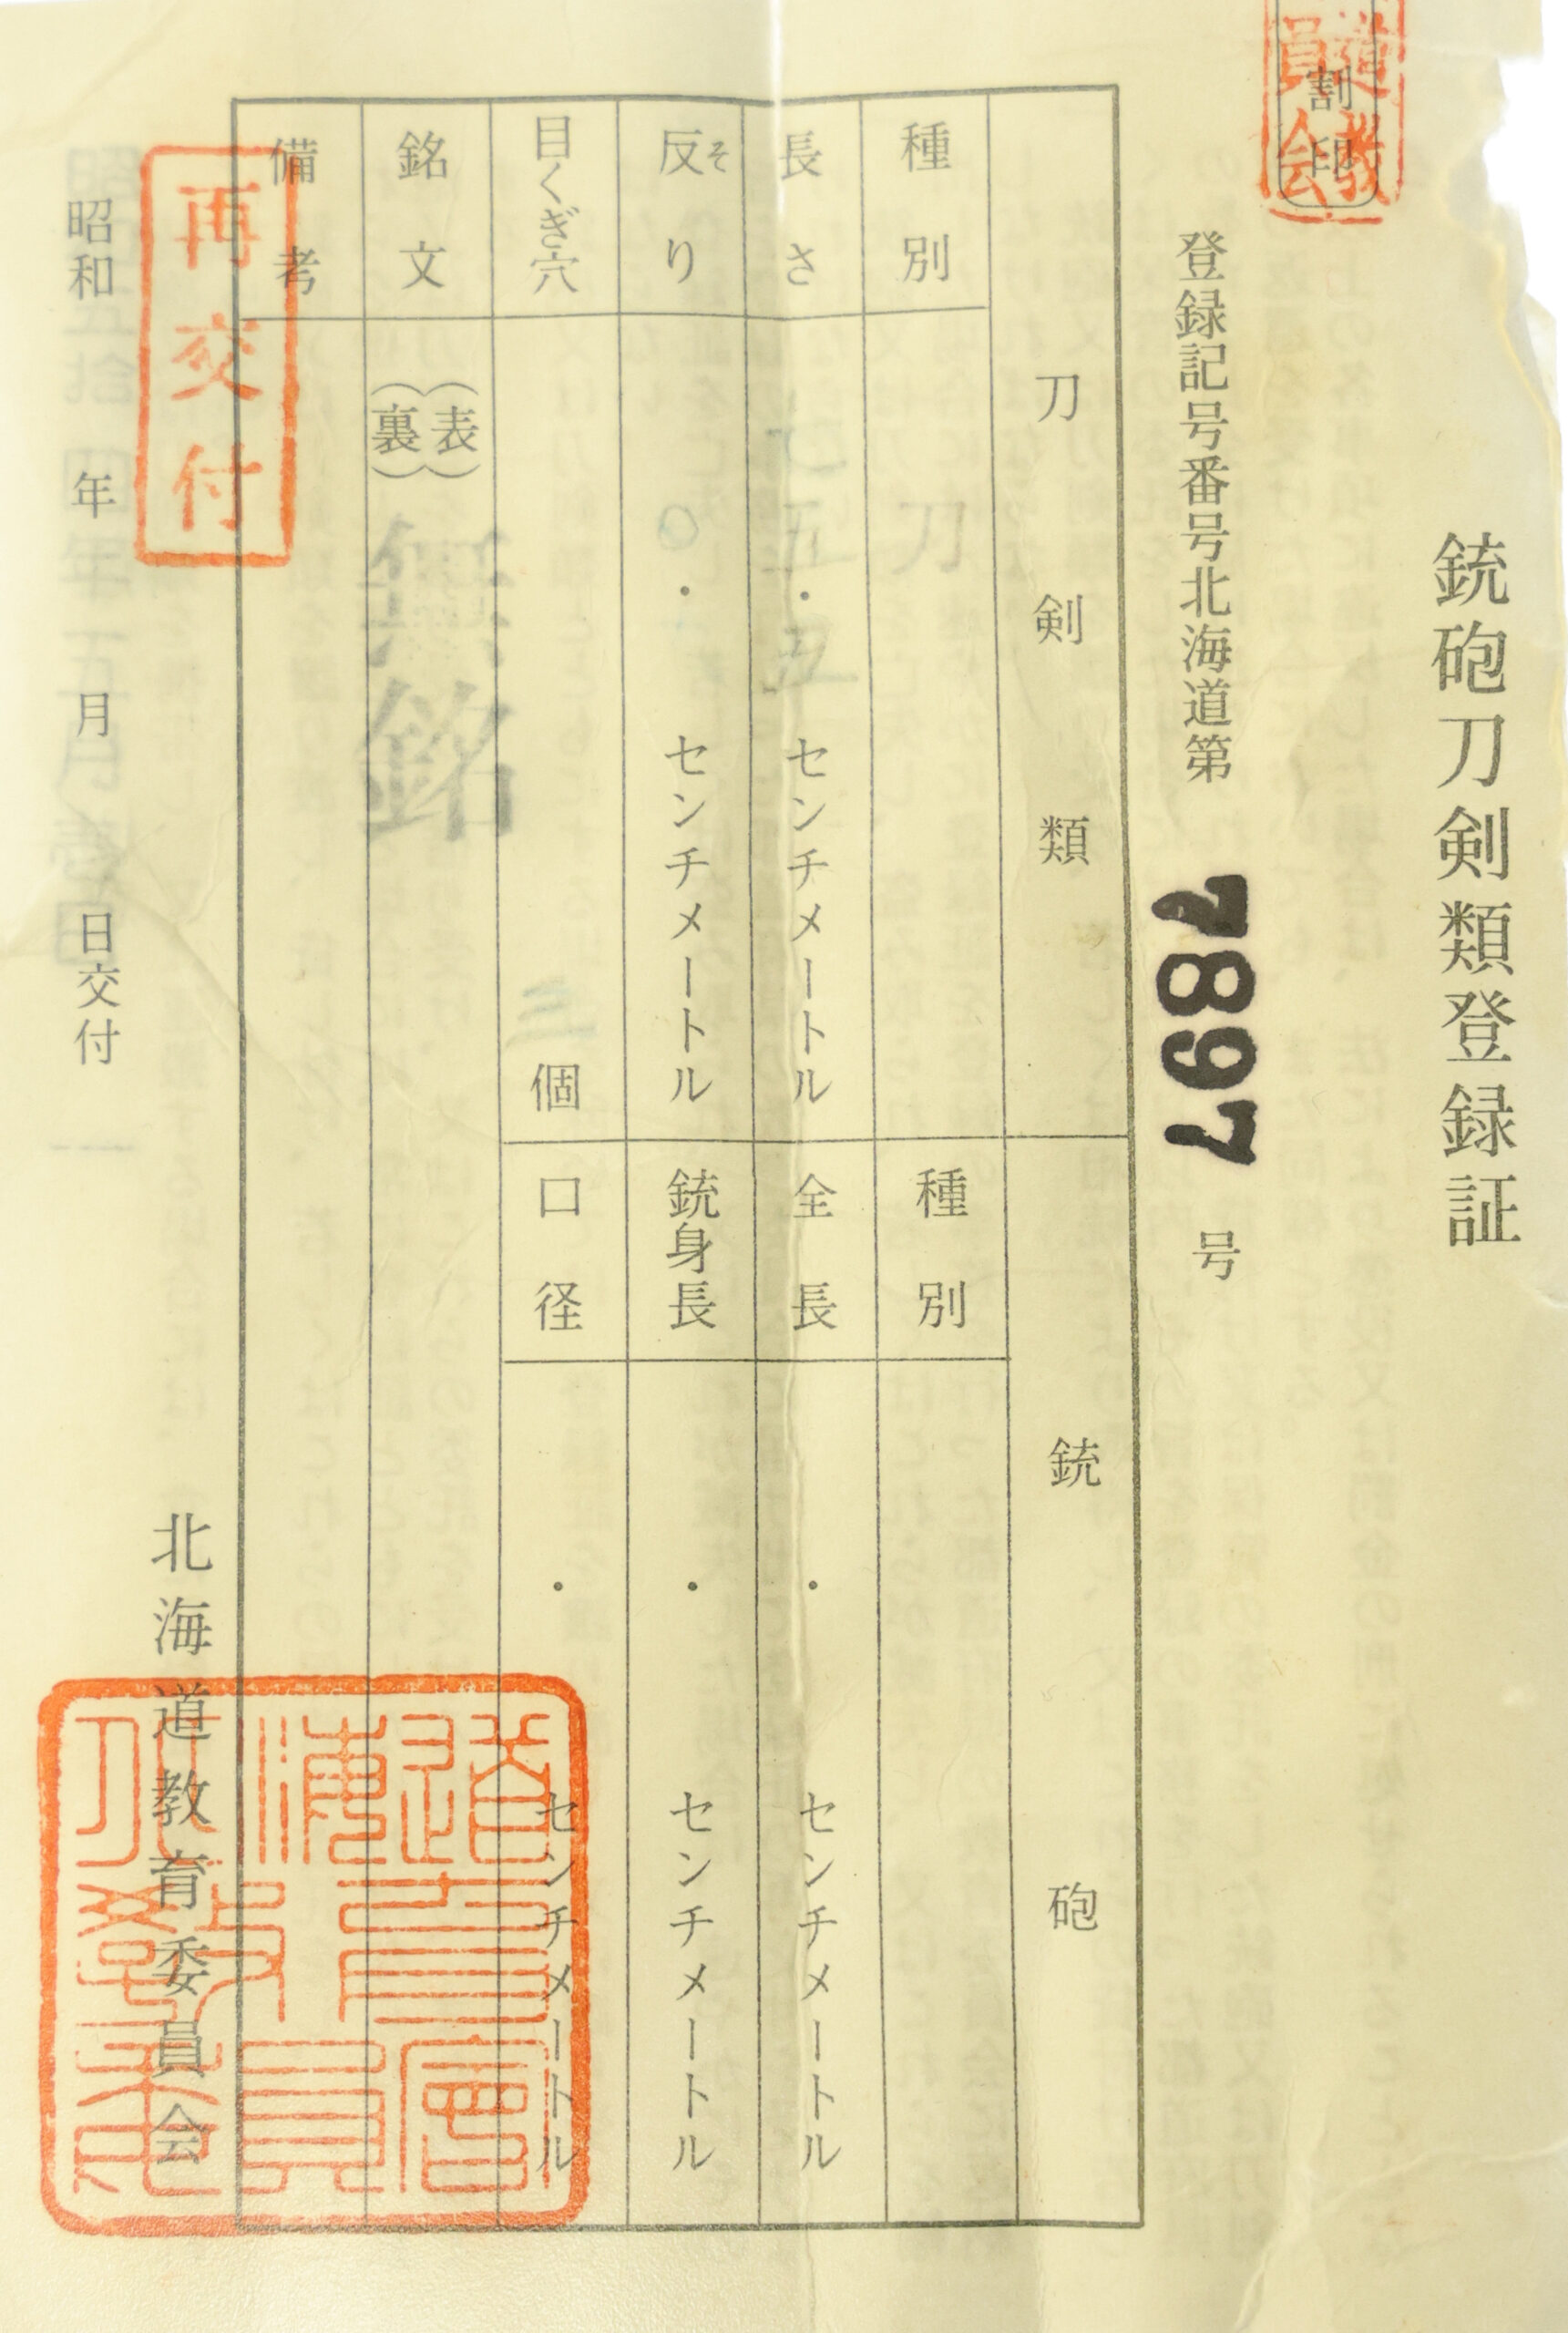 割印
銃砲刀剣類登録証
登録記号番号北海道第 7897 号
刀剣類
銃砲
種別 刀
種別
長さ 七五・五 センチメートル
全長 ・ センチメートル
反り そ 〇・ センチメートル
銃身長 ・ センチメートル
目くぎ穴 三 個
口径 ・ センチメートル
銘文 (表) (裏) 無銘
備考
再交付
昭和 年 月 日交付
北海道教育委員会